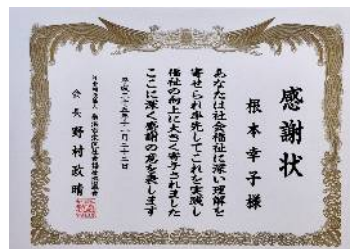 感謝状
根本幸子様
あなたは社会福祉に深い理解を
寄せられ率先してこれを実践し
福祉の向上に大きく寄与されました
ここに深く感謝の意を表します
平成二十五年十一月二十二日
会長野村政晴